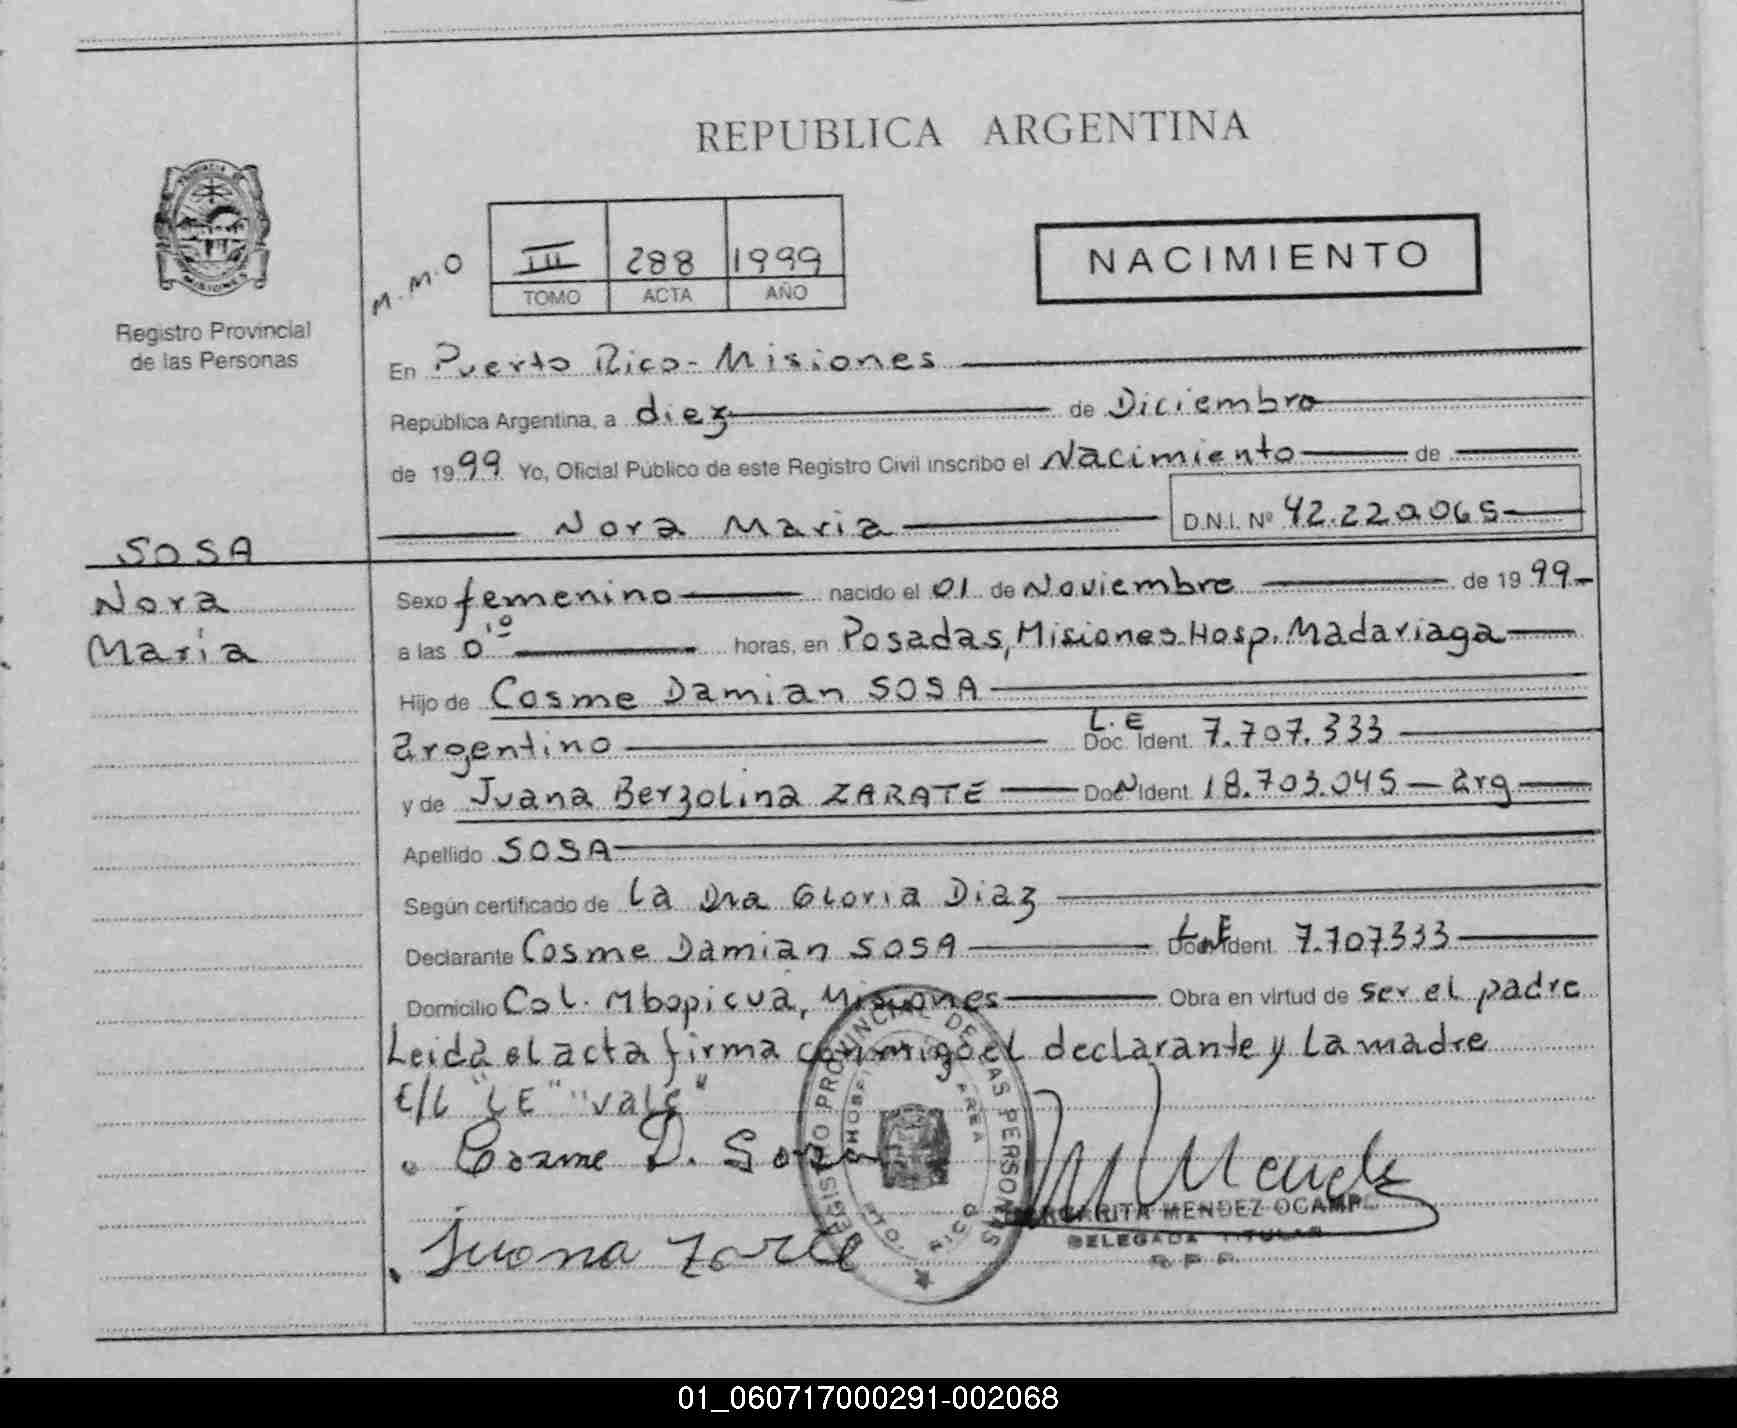 REPUBLICA ARGENTINA
PROVINCIA DE MISIONES
Registro Provincial
de las Personas
M.M.O
III 288 1999
TOMO ACTA AÑO
NACIMIENTO
En Puerto Rico - Misiones
República Argentina, a diez de Diciembre
de 1999 Yo, Oficial Público de este Registro Civil inscribo el Nacimiento de
Nora Maria D.N.I. Nº 42.220.065
SOSA
Nora
Maria
Sexo femenino nacido el 01 de Noviembre de 1999
a las 0'10 horas, en Posadas, Misiones Hosp. Madariaga
Hijo de Cosme Damian SOSA
argentino L.E Doc. Ident. 7.707.333
y de Juana Berzolina ZARATE Doc. Ident. 18.703.045 - arg
Apellido SOSA
Según certificado de la Dra Gloria Diaz
Declarante Cosme Damian SOSA L.E Doc. Ident. 7.707.333
Domicilio Col. Mbopicuá, Misiones Obra en virtud de ser el padre
Leida el acta firma conmigo el declarante y la madre
E/L "LE" "vale"
Cosme D. Sosa
Juana Zarate
REGISTRO PROVINCIAL DE LAS PERSONAS
AREA
PTO. RICO
MARGARITA MENDEZ OCAMPO
DELEGADA TITULAR
R.P.P.
01_060717000291-002068